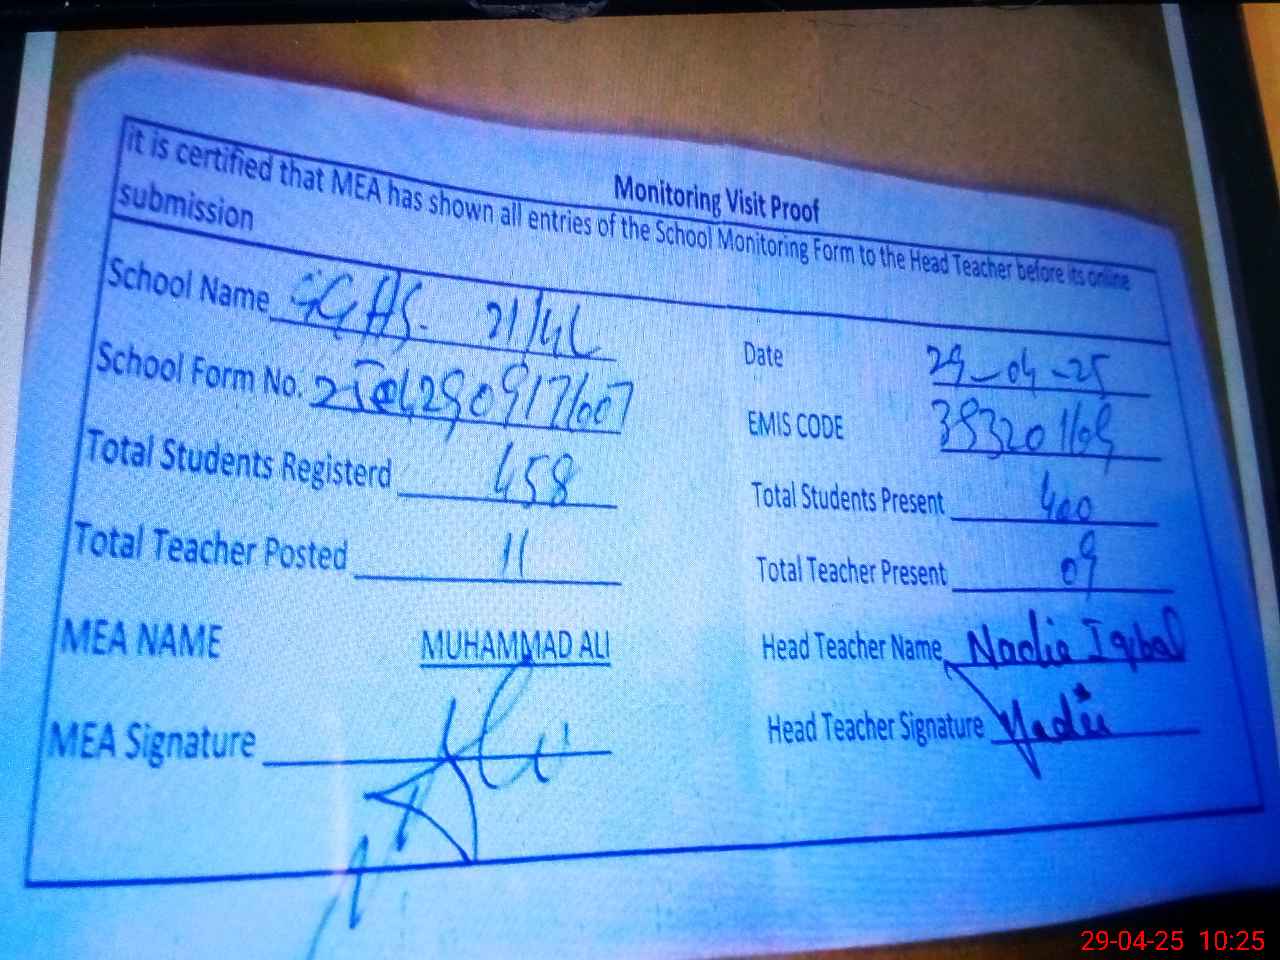 Monitoring Visit Proof
it is certified that MEA has shown all entries of the School Monitoring Form to the Head Teacher before its online
submission
School Name GGHS. 21/4L
Date 29-04-25
School Form No.
EMIS CODE
Total Students Registerd 458
Total Students Present 400
Total Teacher Posted 11
Total Teacher Present 09
MEA NAME MUHAMMAD ALI
Head Teacher Name Nadia Iqbal
MEA Signature
Head Teacher Signature Nadia
29-04-25 10:25